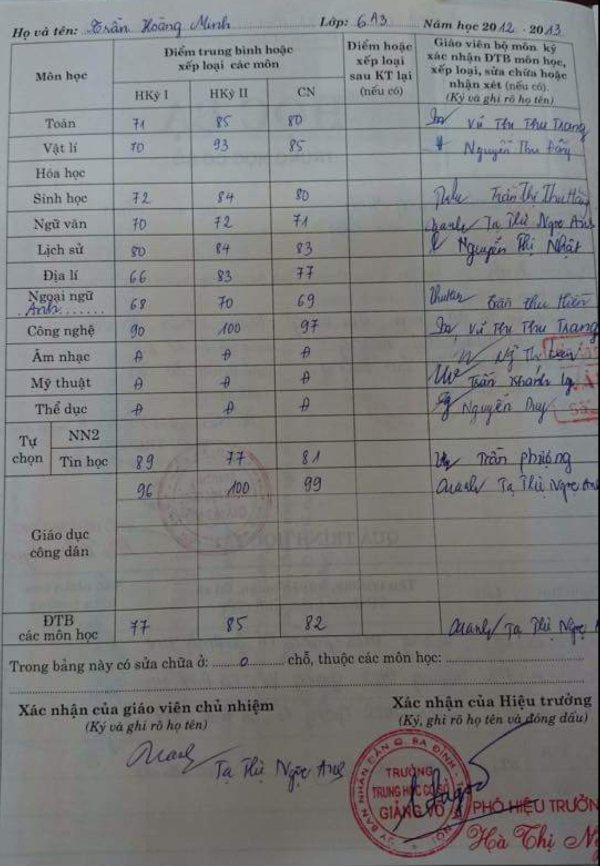 Họ và tên: Trần Hoàng Minh Lớp: 6A3 Năm học 2012 - 2013
Môn học Điểm trung bình hoặc xếp loại các môn Điểm hoặc xếp loại sau KT lại (nếu có) Giáo viên bộ môn ký xác nhận ĐTB môn học, xếp loại, sửa chữa hoặc nhận xét (nếu có). (Ký và ghi rõ họ tên)
HKỳ I HKỳ II CN
Toán 71 85 80 Vũ Thị Thu Trang
Vật lí 70 93 85 Nguyễn Thu
Hóa học
Sinh học 72 84 80 Trần Thị Thu
Ngữ văn 70 72 71 Tạ Thị Ngọc Anh
Lịch sử 80 84 83 Nguyễn Thị Nhật
Địa lí 66 83 77
Ngoại ngữ Anh 68 70 69 Trần Thu Hiền
Công nghệ 90 100 97 Vũ Thị Thu Trang
Âm nhạc Đ Đ Đ
Mỹ thuật Đ Đ Đ Trần Khánh
Thể dục Đ Đ Đ Nguyễn Duy
Tự chọn NN2
Tin học 89 77 81 Trần Phương
Giáo dục công dân 96 100 99 Tạ Thị Ngọc Anh
ĐTB các môn học 77 85 82 Tạ Thị Ngọc
Trong bảng này có sửa chữa ở: 0 chỗ, thuộc các môn học:
Xác nhận của giáo viên chủ nhiệm
(Ký và ghi rõ họ tên)
Tạ Thị Ngọc Anh
Xác nhận của Hiệu trưởng
(Ký, ghi rõ họ tên và đóng dấu)
ỦY BAN NHÂN DÂN Q. BA ĐÌNH
TRƯỜNG
TRUNG HỌC CƠ SỞ
GIẢNG VÕ
PHÓ HIỆU TRƯỞNG
Hà Thị